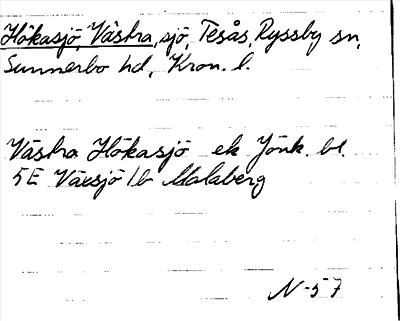 Hökasjö, Västra, sjö, Tesås, Ryssby sn,
Sunnerbo hd, Kron. l.
Västra Hökasjö ek Jönk. bl.
5E Växsjö 1b Malaberg
N-57